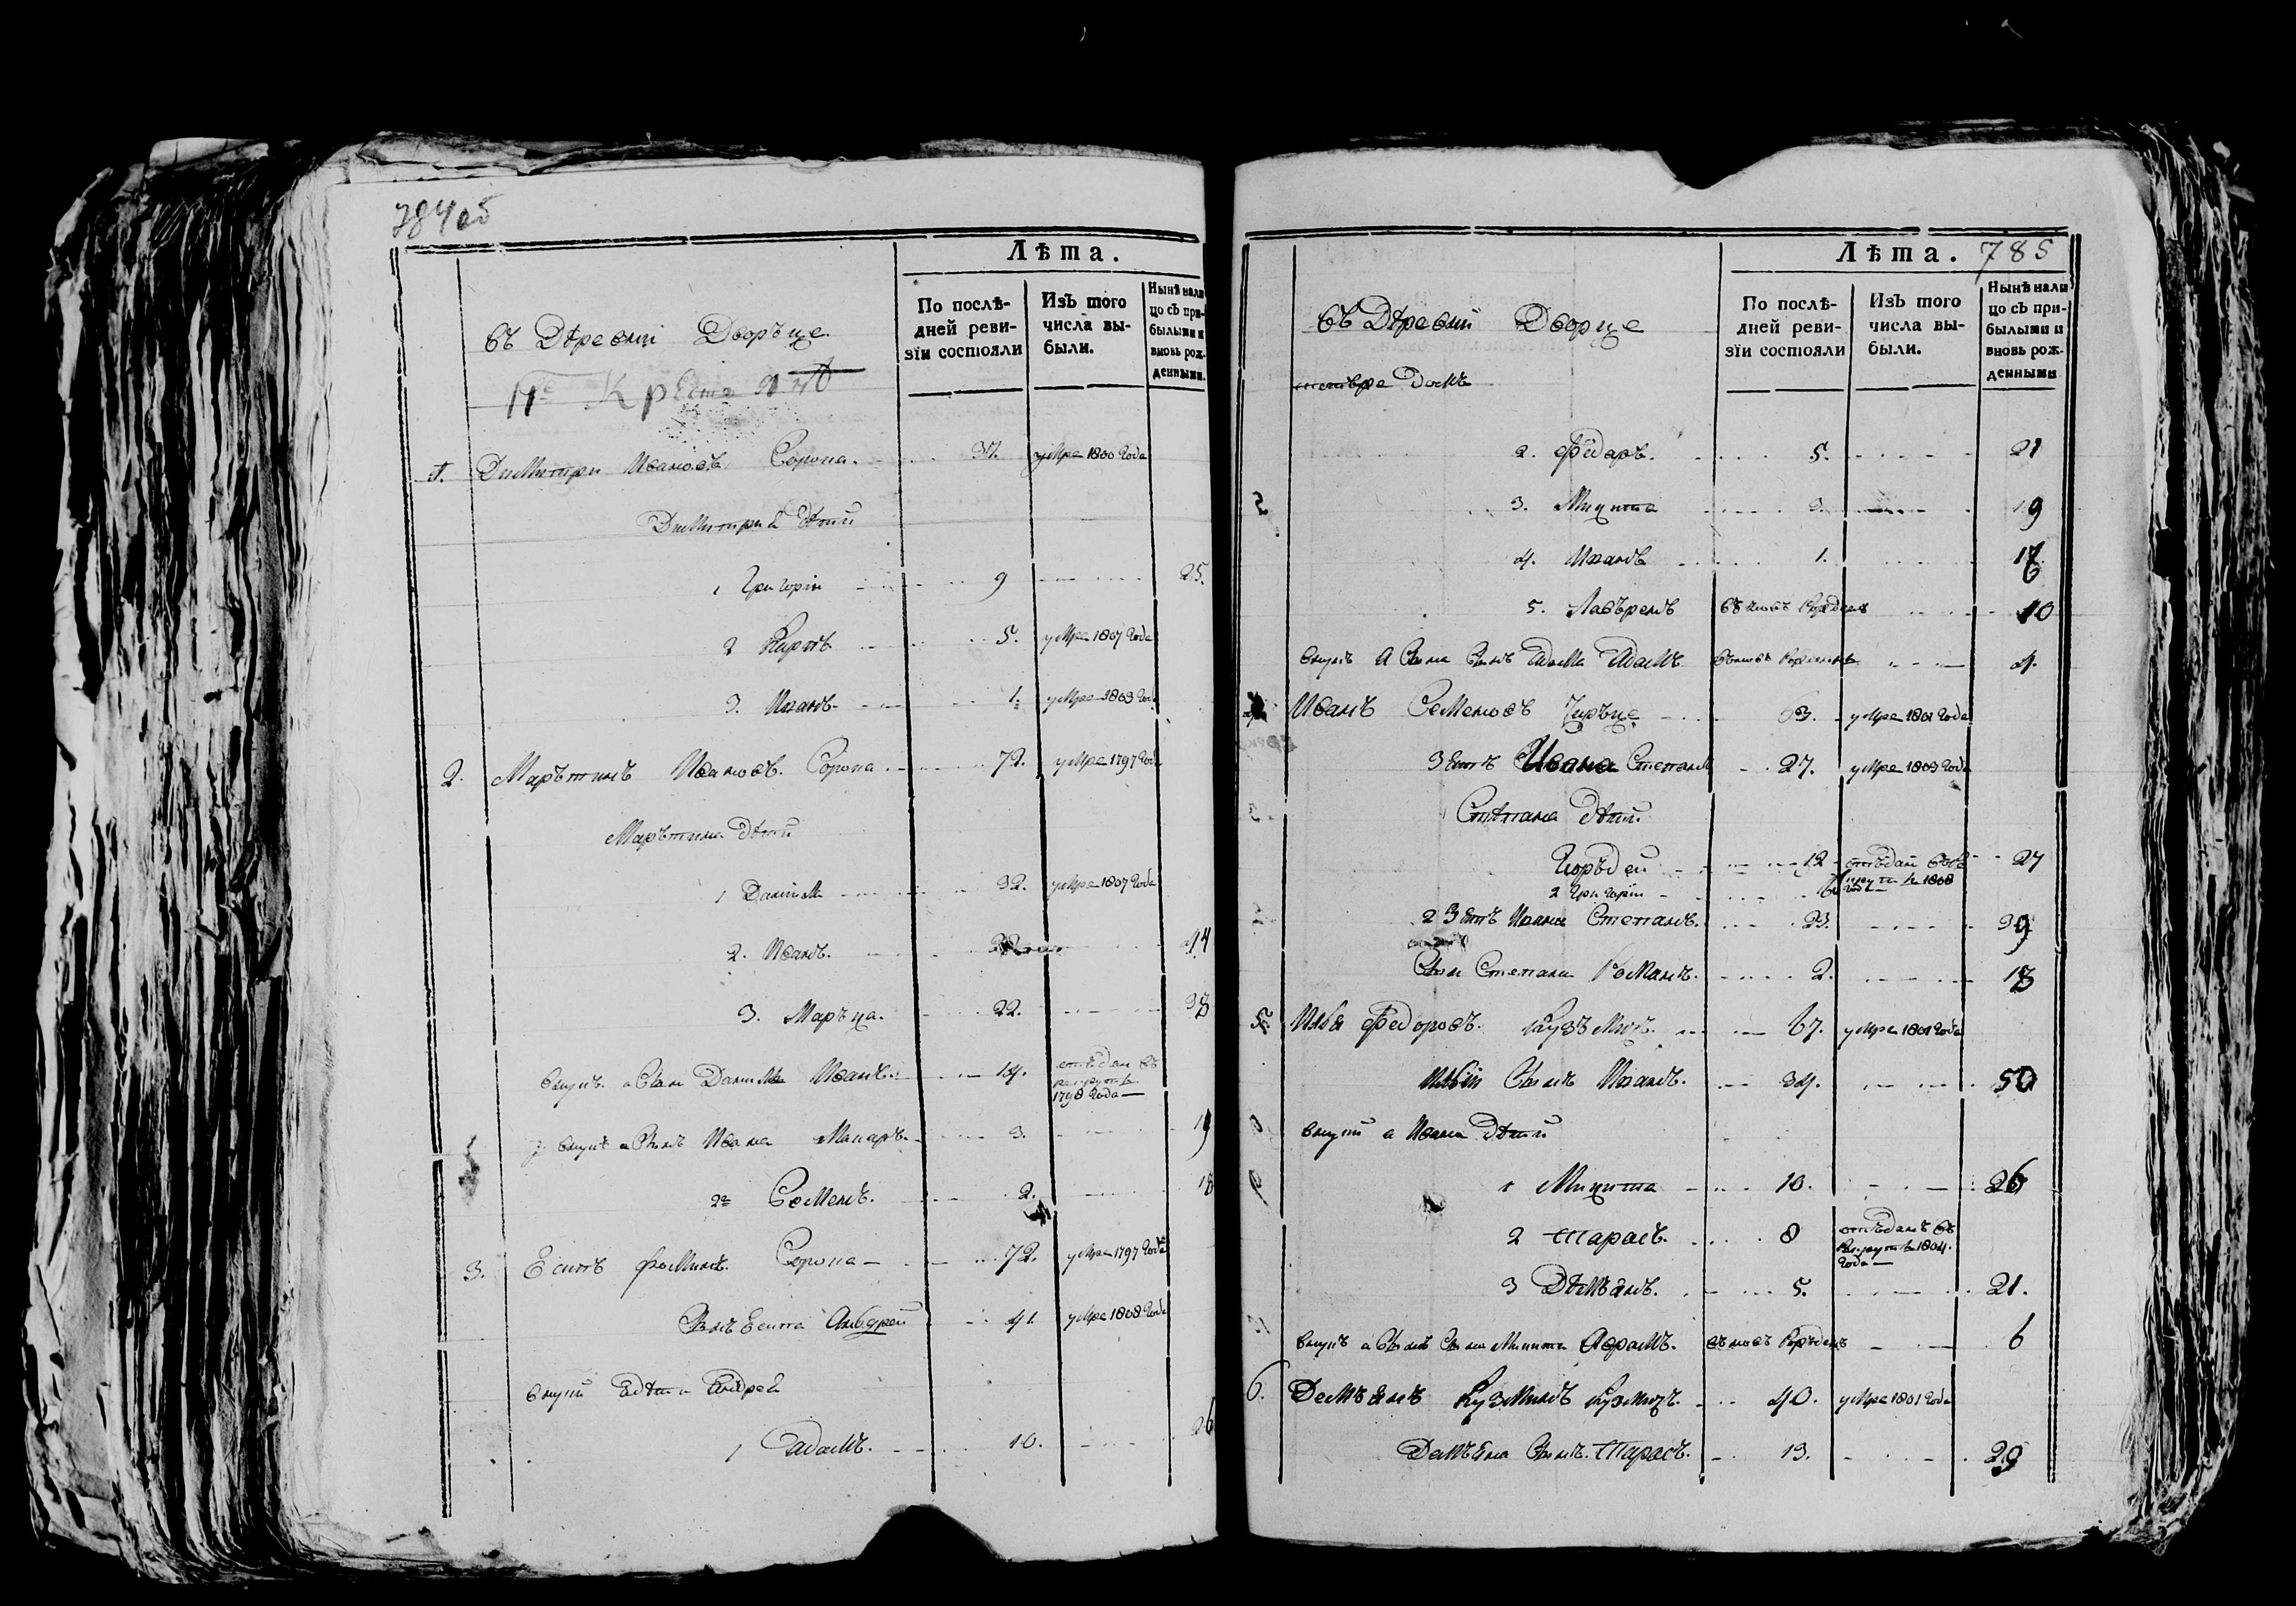 784об
Лѣта.
По послѣ-
дней реви-
зїи состояли
Изъ того
числа вы-
были.
Нынѣ нали
цо съ при-
былыми и
вновь рож-
денными.
въ Деревни Дворъце
1. Димитри Ивановъ Сорока. 31. умре 1800 Года
Димитрия дети
1 Григорій 9 25.
2 Карпъ 5. умре 1807 Года
3. Иванъ 1. умре 1803 Года
2. Марътинъ Ивановъ Сорока 72. умре 1797 Года
Марътина дети
1 Данила 32. умре 1807 Года
2. Иванъ. 44
3. Маръца. 22. 38
внукъ а Сынъ Данила Иванъ. 14. отъдан въ
рекруты
1798 Года
внукъ а Сынъ Ивана Макаръ. 3. 19
2й Семенъ. 2. 18
3. Есипъ Фоминъ Сорока 72. умре 1797 Года
Сынъ Есипа Анъдрей 41 умре 1808 Года
внуки дети Андрея
1 Адамъ. 10. 26
785
Лѣта.
По послѣ-
дней реви-
зїи состояли
Изъ того
числа вы-
были.
Нынѣ нали
цо съ при-
былыми и
вновь рож-
денными
въ Деревни Дворце
2. Федаръ. 5. 21
3. Микита 3. 19
4. Иванъ 1. 17
5. Лавъренъ въновъ Рожденъ 10
внукъ а Сына Сынъ Адама Адамъ въновъ Рожденъ 4.
Иванъ Семеновъ 63. умре 1801 Года
Зеть Ивана Степанъ 27. умре 1803 Года
Степана дети
Горъдей 12 отъдан въ
рекруты 1808
Года 27
2 Григорій
2 Зеть Ивана Степанъ. 23. 39
Сын Степана Романъ. 2. 18
5. Илья Федоровъ. Кузъмичъ. 67. умре 1801 Года
Ильи Сынъ Иванъ. 34. 50
внуки а Ивана дети
1 Микита 10. 26
2 Тарасъ. 8 отъданъ въ
Рекруты 1804.
Года
3 Демъянъ. 5. 21.
внукъ а Сынъ Сына Микита Аврамъ. въновъ Рожденъ 6
6. Демъянъ Кузминъ Кузмичъ. 40. умре 1801 Года
Демъяна Сынъ. Тарасъ. 13. 29